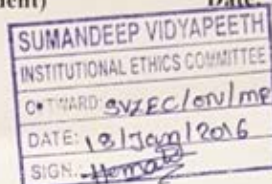 ent)
Date:
SUMANDEEP VIDYAPEETH
INSTITUTIONAL ETHICS COMMITTEE
OUTWARD: SVIEC/ON/MP
DATE: 18/Jan/2016
SIGN.: